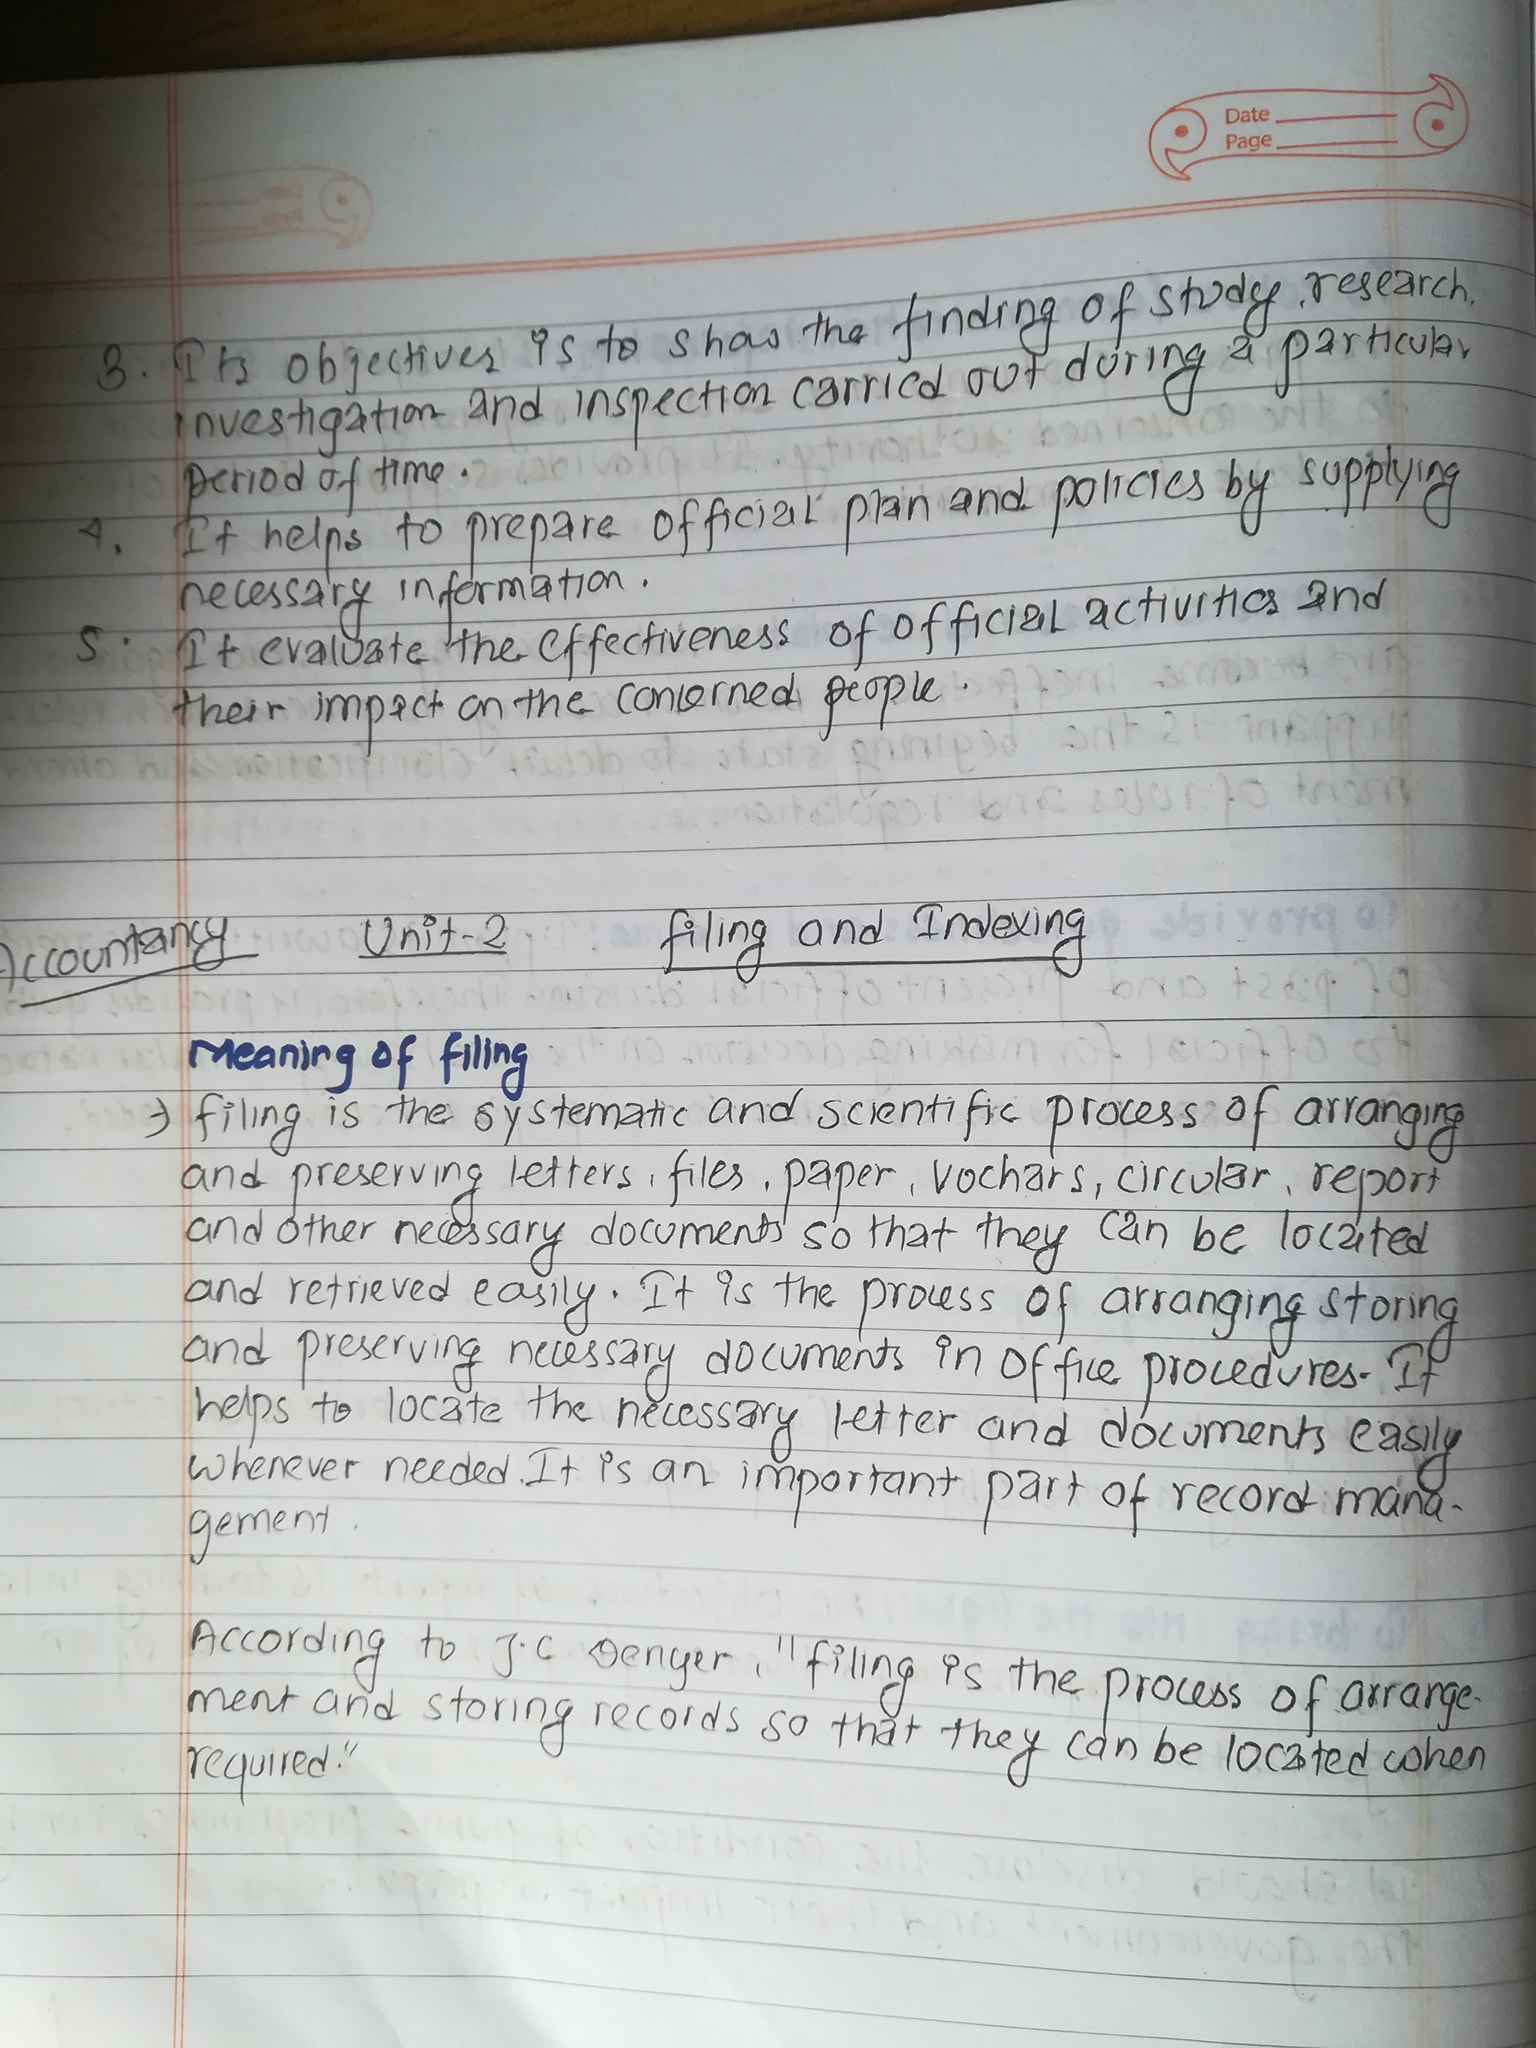 Date
Page
3. Its objectives is to show the finding of study, research,
investigation and inspection carried out during a particular
period of time.
4. It helps to prepare official plan and policies by supplying
necessary information.
5. It evaluate the effectiveness of official activities and
their impact on the concerned people.
Accountancy Unit-2 filing and Indexing
Meaning of filing
→ filing is the systematic and scientific process of arranging
and preserving letters, files, paper, vochars, circular, report
and other necessary documents so that they can be located
and retrieved easily. It is the process of arranging storing
and preserving necessary documents in office procedures. It
helps to locate the necessary letter and documents easily
whenever needed. It is an important part of record mana-
gement.
According to J.C Denyer, "filing is the process of arrange-
ment and storing records so that they can be located when
required."